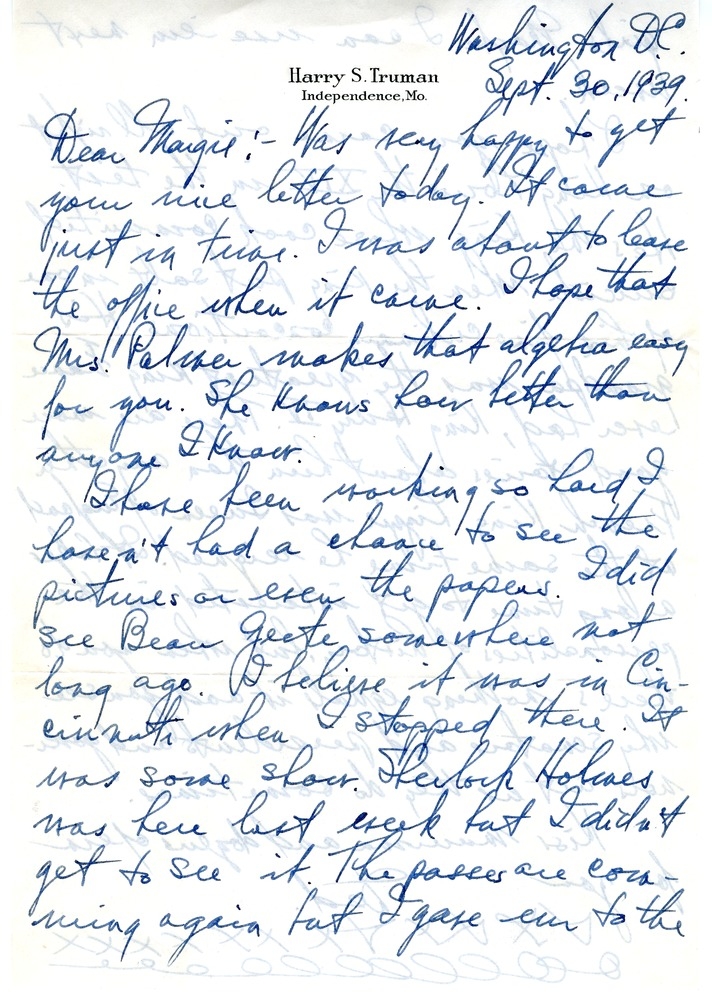 Washington D.C.
Harry S. Truman
Independence, Mo.
Sept. 30, 1939.
Dear Margie:- Was very happy to get
your nice letter today. It came
just in time. I was about to leave
the office when it came. I hope that
Mrs. Palmer makes that algebra easy
for you. She knows how better than
anyone I know.
I have been working so hard I
haven't had a chance to see the
pictures or even the papers. I did
see Beau Geste somewhere not
long ago. I believe it was in Cin-
cinnati when I stopped there. It
was some show. Sherlock Holmes
was here last week but I didn't
get to see it. The passes are com-
ming again but I gave em to the